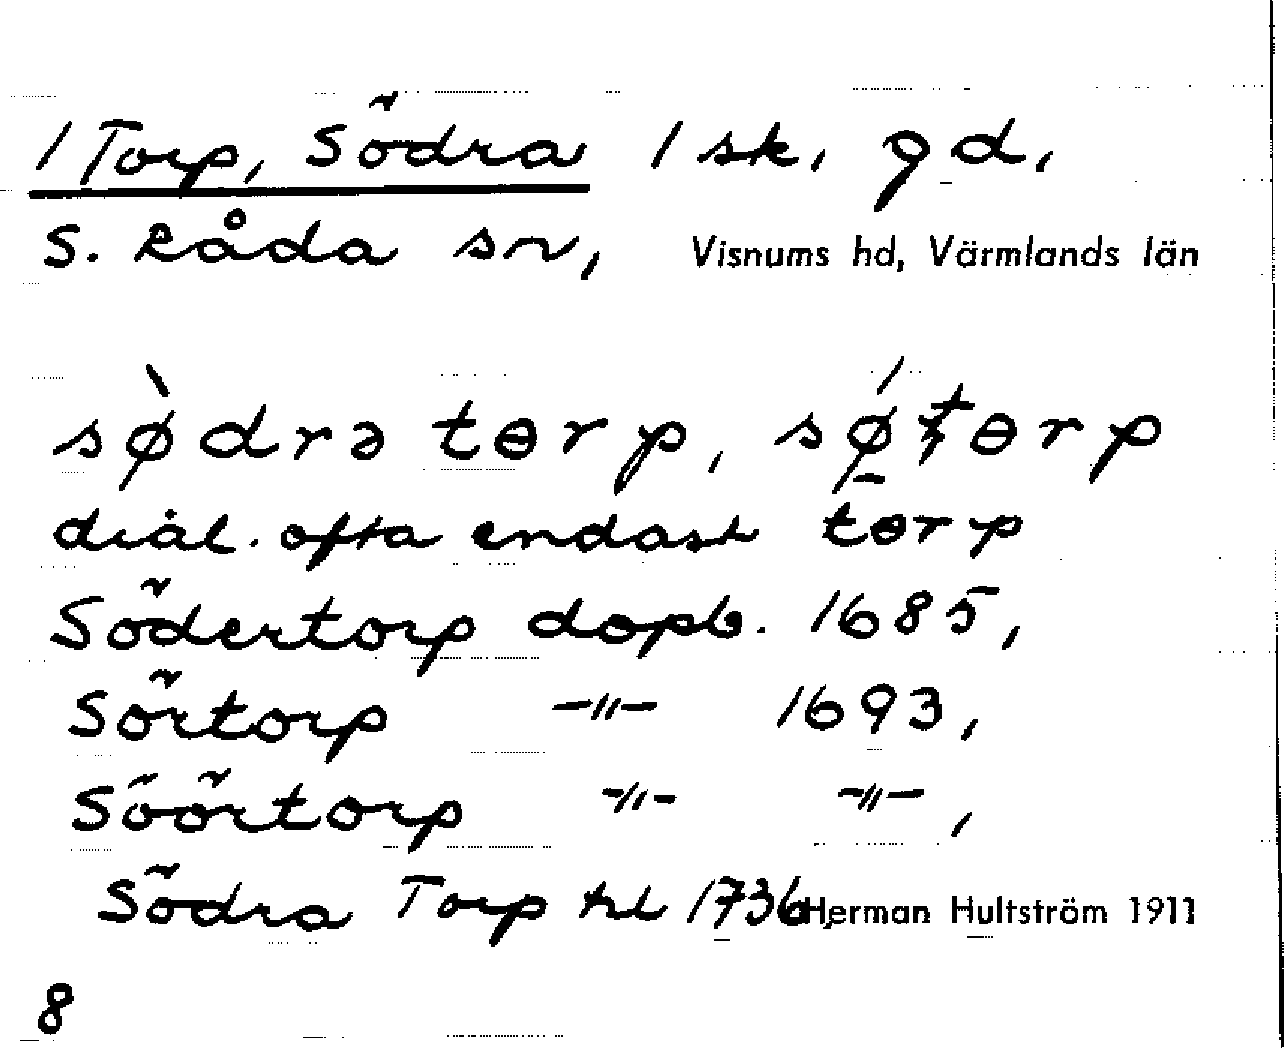 1 Torp, Södra 1 sk, gd,
S. Råda sn, Visnums hd, Värmlands län
sø̀drə tɵrp, sǿtɵrp
diäl. ofta endast tɵrp
Södertorp dopb. 1685,
Sörtorp -"- 1693,
Söörtorp -"- -"-,
Södra Torp hl 1736, Herman Hultström 1911
8